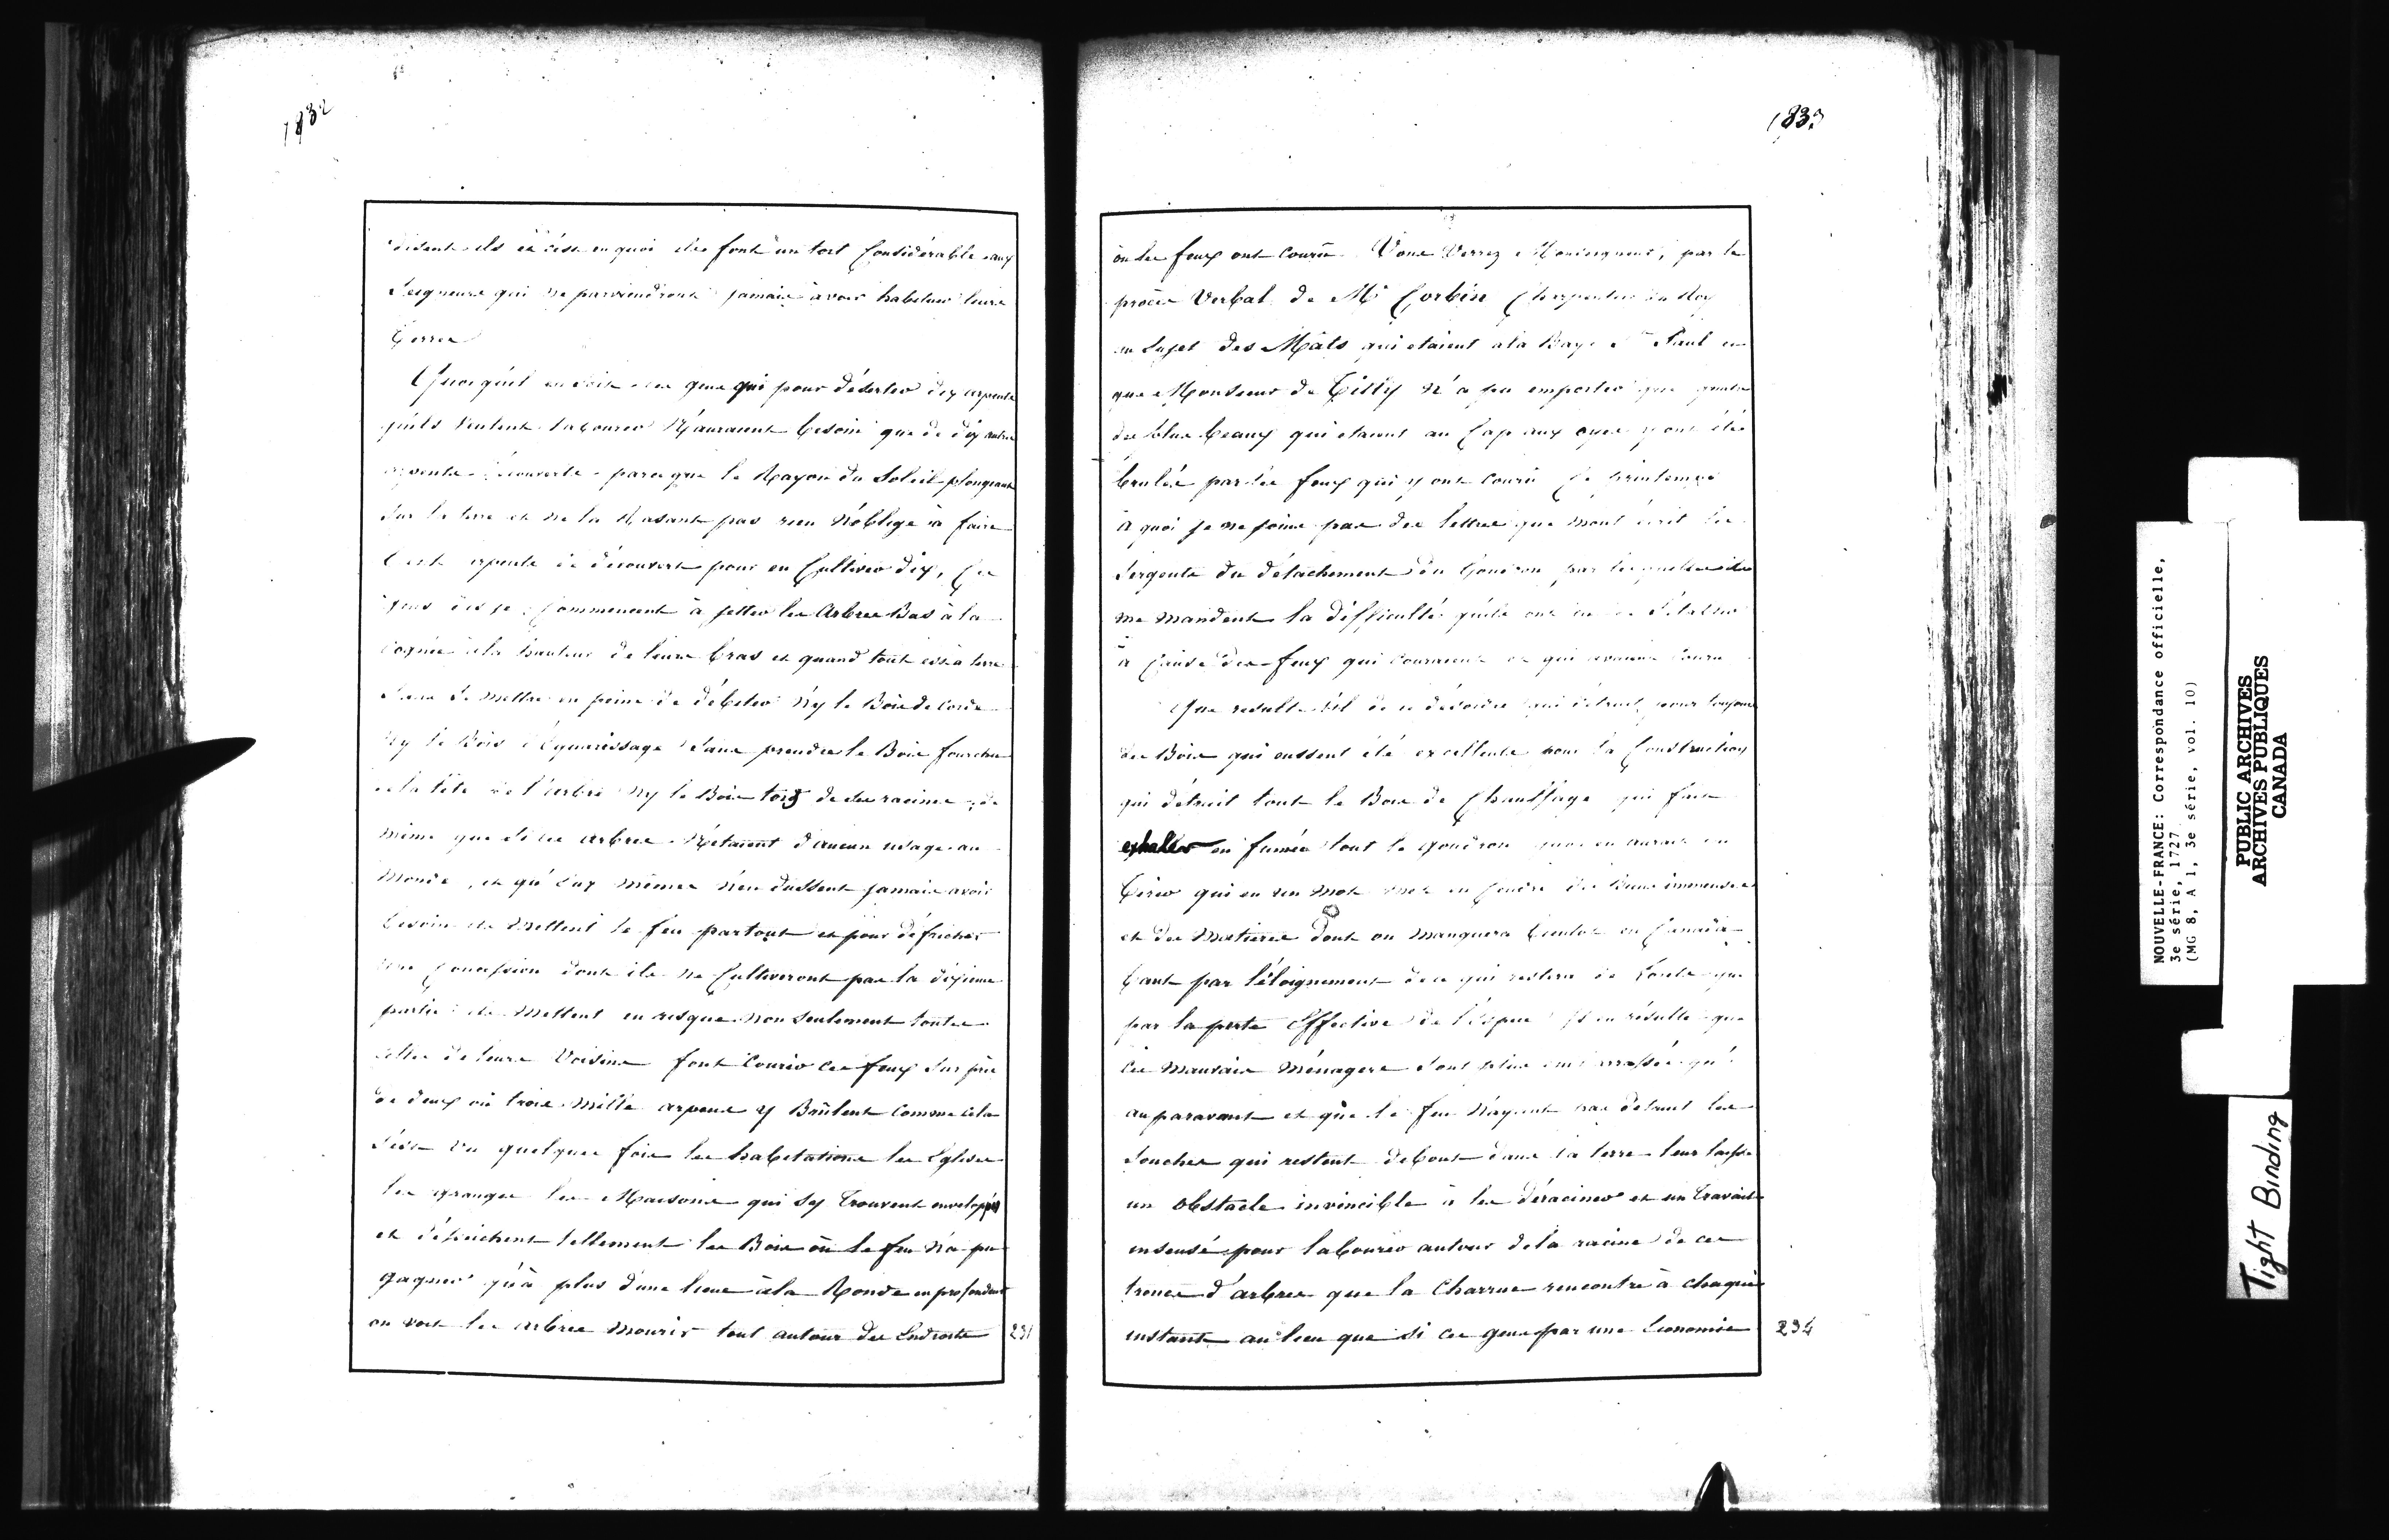 1832
disent ils et c'est en quoi ils font un tort Considérable aux
Seigneurs qui ne parviendront jamais avoir habituer leurs
Terres
Quoiqu'il en soit ces gens qui pour déserter dix arpents
qu'ils veulent labourer N'auraient besoin que de dix autres
arpents découverts parceque le Rayon du Soleil plongeant
Sur la terre et ne la Rasant pas rien N'oblige à faire
Cent arpents de découvert pour en Cultiver dix, Ces
gens dis je Commencent à jetter les Arbres Bas à la
cognée à la hauteur de leurs bras et quand tout est à terre
Sans Se mettre en peine de débiter N'y le Bois de corde
Ny le Bois d'équarissage Sans prendre le Bois fourchu
de la tête de l'arbre Ny le Bois tord de des racines, de
même que si ces arbres N'étaient d'aucun usage au
Monde, et qu'Eux mêmes n'en dussent jamais avoir
besoin ils mettent le feu partout et pour défricher
Une Concession dont ils ne Cultiveront pas la dixieme
partie ils mettent en risque non seulement toutes
celles de leurs Voisins font Courir ces feux Sur près
de deux où trois mille arpens y Brûlent comme cela
S'est vu quelques fois les habitations les Eglises
les granges les Maisons qui s'y trouvent envelopés
et dessèchent tellement les Bois où le feu N'a pu
gagner qu'à plus d'une lieue à la Ronde en profondeur
on voit les arbres mourir tout autour des Endroits
231
1833
où les feux ont couru. Vous Verrez Monseigneur, par le
procès Verbal de Mr Corbin Charpentier du Roy
au Sujet des Mâts qui etaient à la Baye St Paul et
que Monsieur de Tilly N'a pu emporter que quatre
des plus beaux qui etaient au Cap aux oyes y ont été
brulés par les feux qui y ont couru Ce printemps
à quoi je ne joins pas des lettres que m'ont écrit les
Sergents du détachement du Goudron par lesquelles ils
me mandent la difficulté qu'ils ont eu de S'établir
à Cause des feux qui couraient et qui avaient couru
Que resulte t'il de ce désordre qui détruit pour toujours
des Bois qui eussent été excellents pour la Construction
qui détruit tout le Bois de Chauffage qui fait
exhaller en fumée tout le goudron qu'on en aurait pu
tirer qui en un mot met en Cendre des Biens immenses
et des Matieres Dont on manquera bientot en Canada
tant par l'éloignement de ce qui restera de Forets que
par la perte Effective de l'Espece Il en résulte que
Ces Mauvais Ménagers sont plus embarrassés qu'
auparavant et que le feu N'ayant pas détruit les
Souches qui restent debout dans la terre leur laisse
un obstacle invincible à les déraciner et un travail
insensé pour labourer autour de la racine de ces
troncs d'arbres que la Charrue rencontre à chaque
instant au lieu que si ces gens par une Economie
234
NOUVELLE-FRANCE: Correspondance officielle,
3e série, 1727
(MG 8, A 1, 3e série, vol. 10)
PUBLIC ARCHIVES
ARCHIVES PUBLIQUES
CANADA
Tight Binding